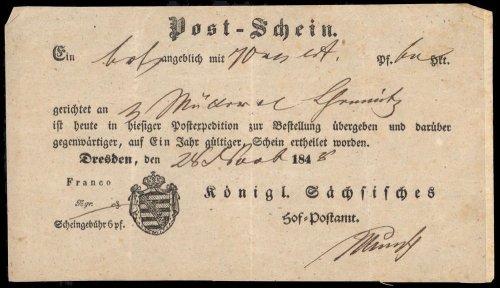 Post-Schein.
Ein angeblich mit 70 Pf. Lt.
gerichtet an Chemnitz
ist heute in hiesiger Postexpedition zur Bestellung übergeben und darüber
gegenwärtiger, auf Ein Jahr gültiger, Schein ertheilet worden.
Dresden, den 28 1848
Franco
Ngr.
Scheingebühr 6 pf.
Königl. Sächsisches
Hof-Postamt.